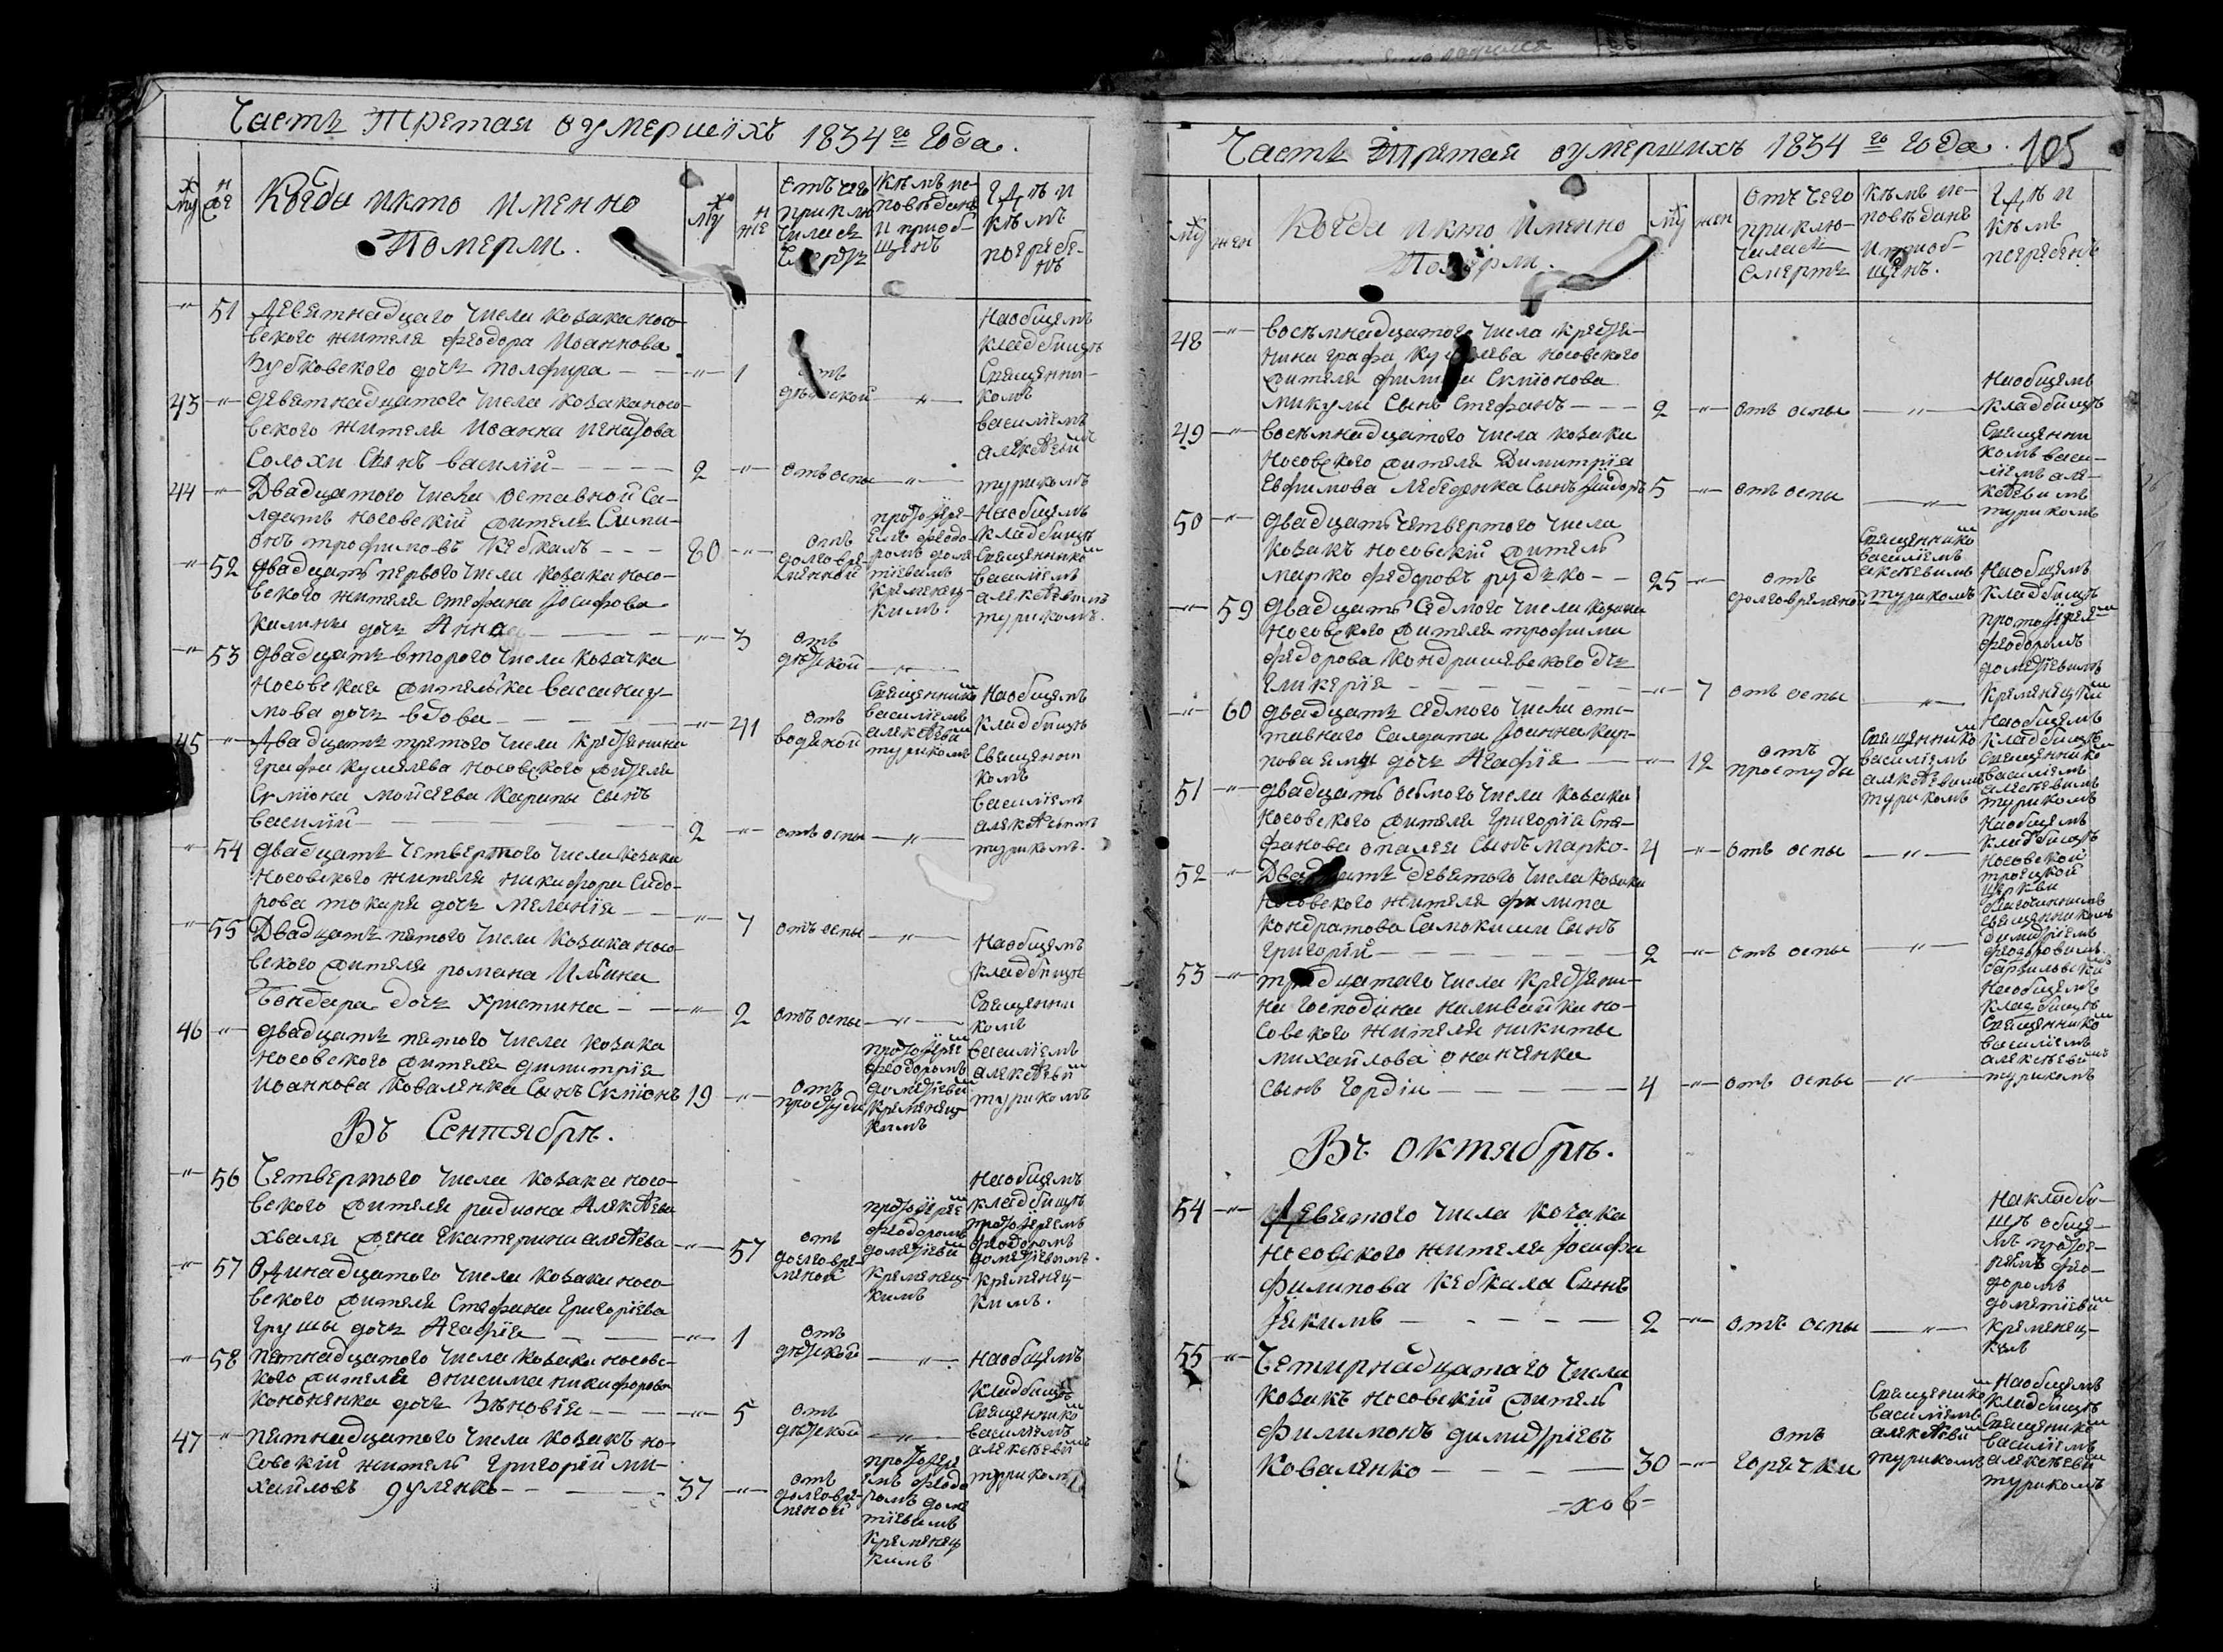 Часть Третая о умершіхъ 1834 го Года.
му же
Когда икто Именно
Померли.
му же
Отъ чего приклю чилась Смерть
Кѣмъ испо повѣданъ И приоб щенъ
Гдѣ И Кѣмъ погребе нъ
" 51 Девятнадцаго числа козака носо-
вского жителя Феодора Иоаннова
Зубковского дочь Полфира — " 1 отъ дѣтской "
Наобщемъ кладбищѣ Священни- комъ василіемъ алексѣевим туриком
43 " девятнадцатого числа козака носо-
вского жителя Иоанна Игнатова
Солохи Сынъ василій — 2 " отъ оспы "
44 " Двадцатого числа оставной Са-
лдатъ носовскій житель Сими-
онъ трофимовъ Кебкалъ — 80 " отъ долговре- менной протоіере- емъ феодо- ромъ доме- тіевимъ кременец- кимъ
Наобщемъ кладбищѣ Священником василіемъ алексѣевимъ туриком
" 52 двадцать первого числа козака носо-
вского жителя Стефана Іосифова
Калины дочь Анна — " 3 отъ дѣтской "
" 53 двадцать второго числа козачка
носовская жителька вассa
мова дочь вдова — " 41 отъ водяной Священником василіемъ алексѣеви туриком
Наобщемъ кладбищѣ Священни комъ василіемъ алексѣевимъ туриком
45 " Двадцать третого числа крестянина
Графа кушелева носовского жителя
Семіона Мойсѣева Карпы Сынъ
василій — 2 " отъ оспы "
" 54 двадцать четвертого числа козака
носовского жителя никифора Сидо-
рова токаря дочь Меланія — " 7 отъ оспы "
" 55 Двадцать пятого числа козака носо-
вского жителя романа Ильина
Бондара дочь Христина — " 2 отъ оспы "
Наобщемъ кладбищѣ Священни комъ василіемъ алексѣеви туриком
46 " двадцать пятого числа козака
носовского жителя димитрія
Иоаннова Коваленка Сынъ Семіонъ 19 " отъ простуди протоіерее феодоромъ дометіеви кременец- кимъ
Въ Сентябрѣ.
" 56 Четвертого числа козака носо-
вского жителя радиона Алексѣева
хваля жена Екатерина алексѣева " 57 отъ долговре- меной протоіерее феодоромъ дометіеви кременец- кимъ
Наобщемъ кладбищѣ протоіереемъ феодоромъ дометіевимъ кременец- кимъ.
" 57 Одинадцатого числа козака носо-
вского жителя Стефана Григоріева
Груши дочь Агафія — " 1 отъ дѣтской "
" 58 пятнадцатого числа козака носовс-
кого жителя Онисима никифорова
Кононенка дочь Зѣновія — " 5 отъ дѣтской "
Наобщемъ кладбищѣ Священнико василіемъ алексѣеви туриком
47 " пятнадцатого числа козакъ но-
совскій житель Григорій ми-
хайловъ — 37 " отъ долговре- меной протоіере емъ феодо ромъ доме тіевимъ кременец кимъ
Часть Третая оумершихъ 1834 го Года. 105
му жен
Когда икто Именно
Померли.
му жен
Отъ чего приклю- чилась Смерть
Кѣмъ ис- повѣданъ И приоб- щенъ.
Гдѣ И Кѣмъ погребенъ
48 " восѣмнадцатого числа крестя-
нина графа кушелева носовского
жителя филипа Семіонова
микули Сынъ Стефанъ — 2 " отъ оспы "
Наобщемъ кладбищѣ Священни комъ васи- ліемъ але- ксѣевимъ туриком
49 " восѣмнадцатого числа козака
носовского жителя Димитрія
Евфимова Лебедонка Сынъ Ісидоръ 5 " отъ оспы "
50 " двадцать четвертого числа
козакъ носовскій житель
марко федоровъ рудько — 25 " отъ долговременой Священнико василіемъ алексѣевимъ туриком
Наобщемъ кладбищѣ протоіерее феодоромъ дометіевимъ кременецким
" 59 двадцать Седмого числа козака
носовского жителя трофима
федорова кондрашевского дочь
Гликерія — " 7 отъ оспы "
" 60 двадцать седмого числа отс-
тавного Салдата Іоанна кар-
пова дочь Агафія — " 12 отъ простуды Священнико василіемъ алексѣевимъ туриком
Наобщемъ кладбищѣ Священнико василіемъ алексѣевимъ туриком
51 " двадцать осмого числа козака
носовского жителя григорія Сте-
фанова опалея Сынъ марко 4 " отъ оспы "
Наобщемъ кладбищѣ носовской троецкой церкви Священникомъ
52 " Двадцать девятого числа козака
носовского жителя филипа
кондратова Самокиши Сынъ
григорій — 2 " отъ оспы "
53 " тридцатаго числа крестяни-
на Господина наливайка но-
совского жителя никиты
михайлова онанченка
сынъ Гордіи — 4 " отъ оспы "
Наобщемъ кладбищѣ Священнико василіемъ алексѣеви туриком
Въ октябрѣ.
54 " Девятого числа козака
носовского жителя Іосифа
филипова кебкала Синъ
Іакимъ — 2 " отъ оспы "
Накладби- щѣ обще- мъ протое- реемъ фео- доромъ дометіеви кременец- ким
55 " Четирнадцатаго числа
козакъ носовскій житель
филимонъ димитріевъ
Коваленко — 30 " отъ горячки Священнико василіемъ алексѣеви туриком
Наобщемъ кладбищѣ Священико василіемъ алексѣеви туриком
-хов-